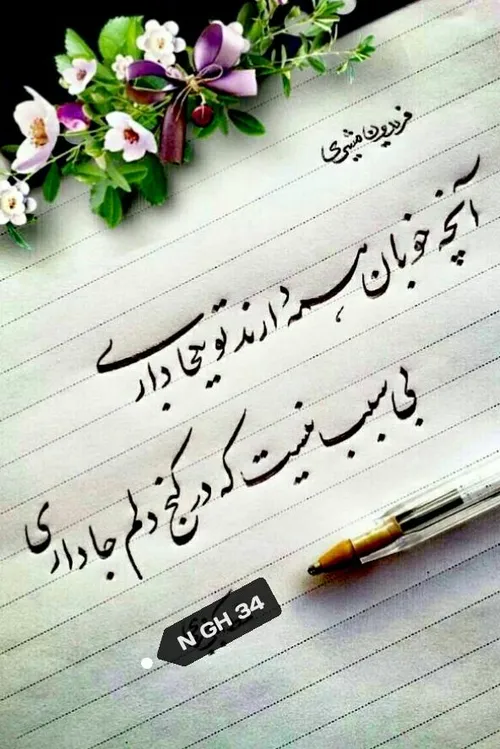 فریدون مشیری
آنچه خوبان همه دارند تو یکجا داری
بی سبب نیست که در کنج دلم جا داری
N GH 34